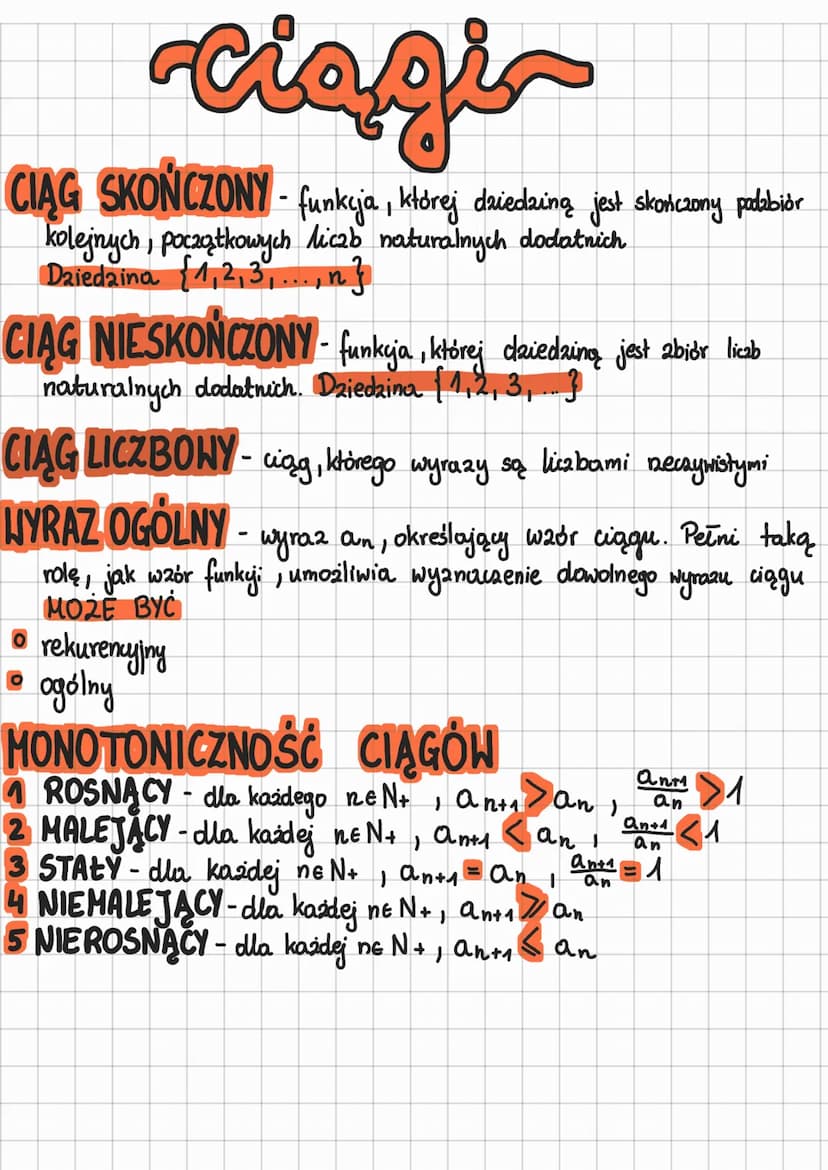 ~ciągi~
CIĄG SKOŃCZONY - funkcja, której dziedziną jest skończony podzbiór
kolejnych, początkowych liczb naturalnych dodatnich
Dziedzina {1,2,3,...,n}
CIĄG NIESKOŃCZONY - funkcja, której dziedziną jest zbiór liczb
naturalnych dodatnich. Dziedzina {1,2,3,...}
CIĄG LICZBOWY - ciąg, którego wyrazy są liczbami rzeczywistymi
WYRAZ OGÓLNY - wyraz an, określający wzór ciągu. Pełni taką
rolę, jak wzór funkcji, umożliwia wyznaczenie dowolnego wyrazu ciągu
MOŻE BYĆ
o rekurencyjny
o ogólny
MONOTONICZNOŚĆ CIĄGÓW
1 ROSNĄCY - dla każdego n∈N+, an+1 > an, an+1/an > 1
2 MALEJĄCY - dla każdej n∈N+, an+1 < an, an+1/an < 1
3 STAŁY - dla każdej n∈N+, an+1 = an, an+1/an = 1
4 NIEMALEJĄCY - dla każdej n∈N+, an+1 ⩾ an
5 NIEROSNĄCY - dla każdej n∈N+, an+1 ⩽ an